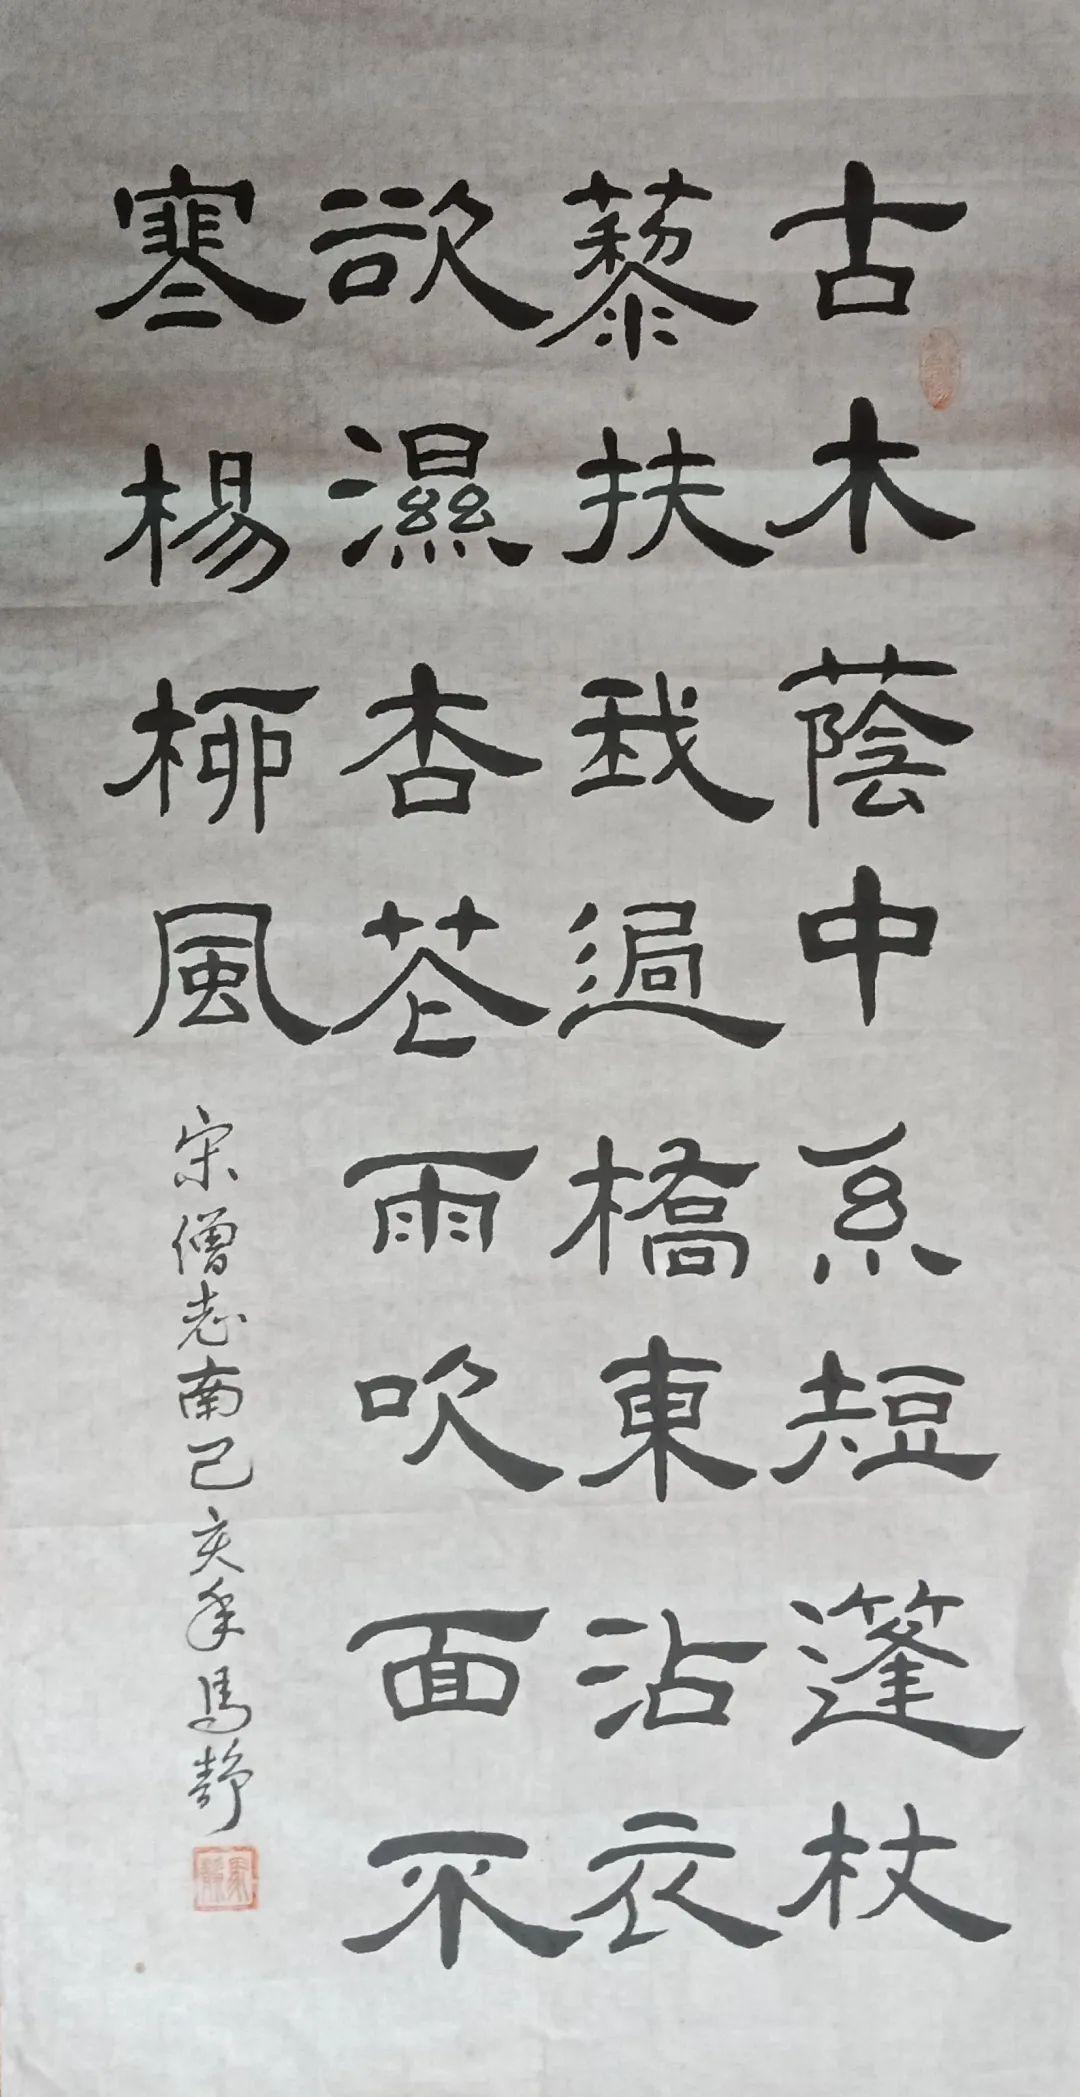 古木蔭中系短篷杖
藜扶我過橋東沾衣
欲濕杏花雨吹面不
寒楊柳風
宋僧志南己亥年馬靜